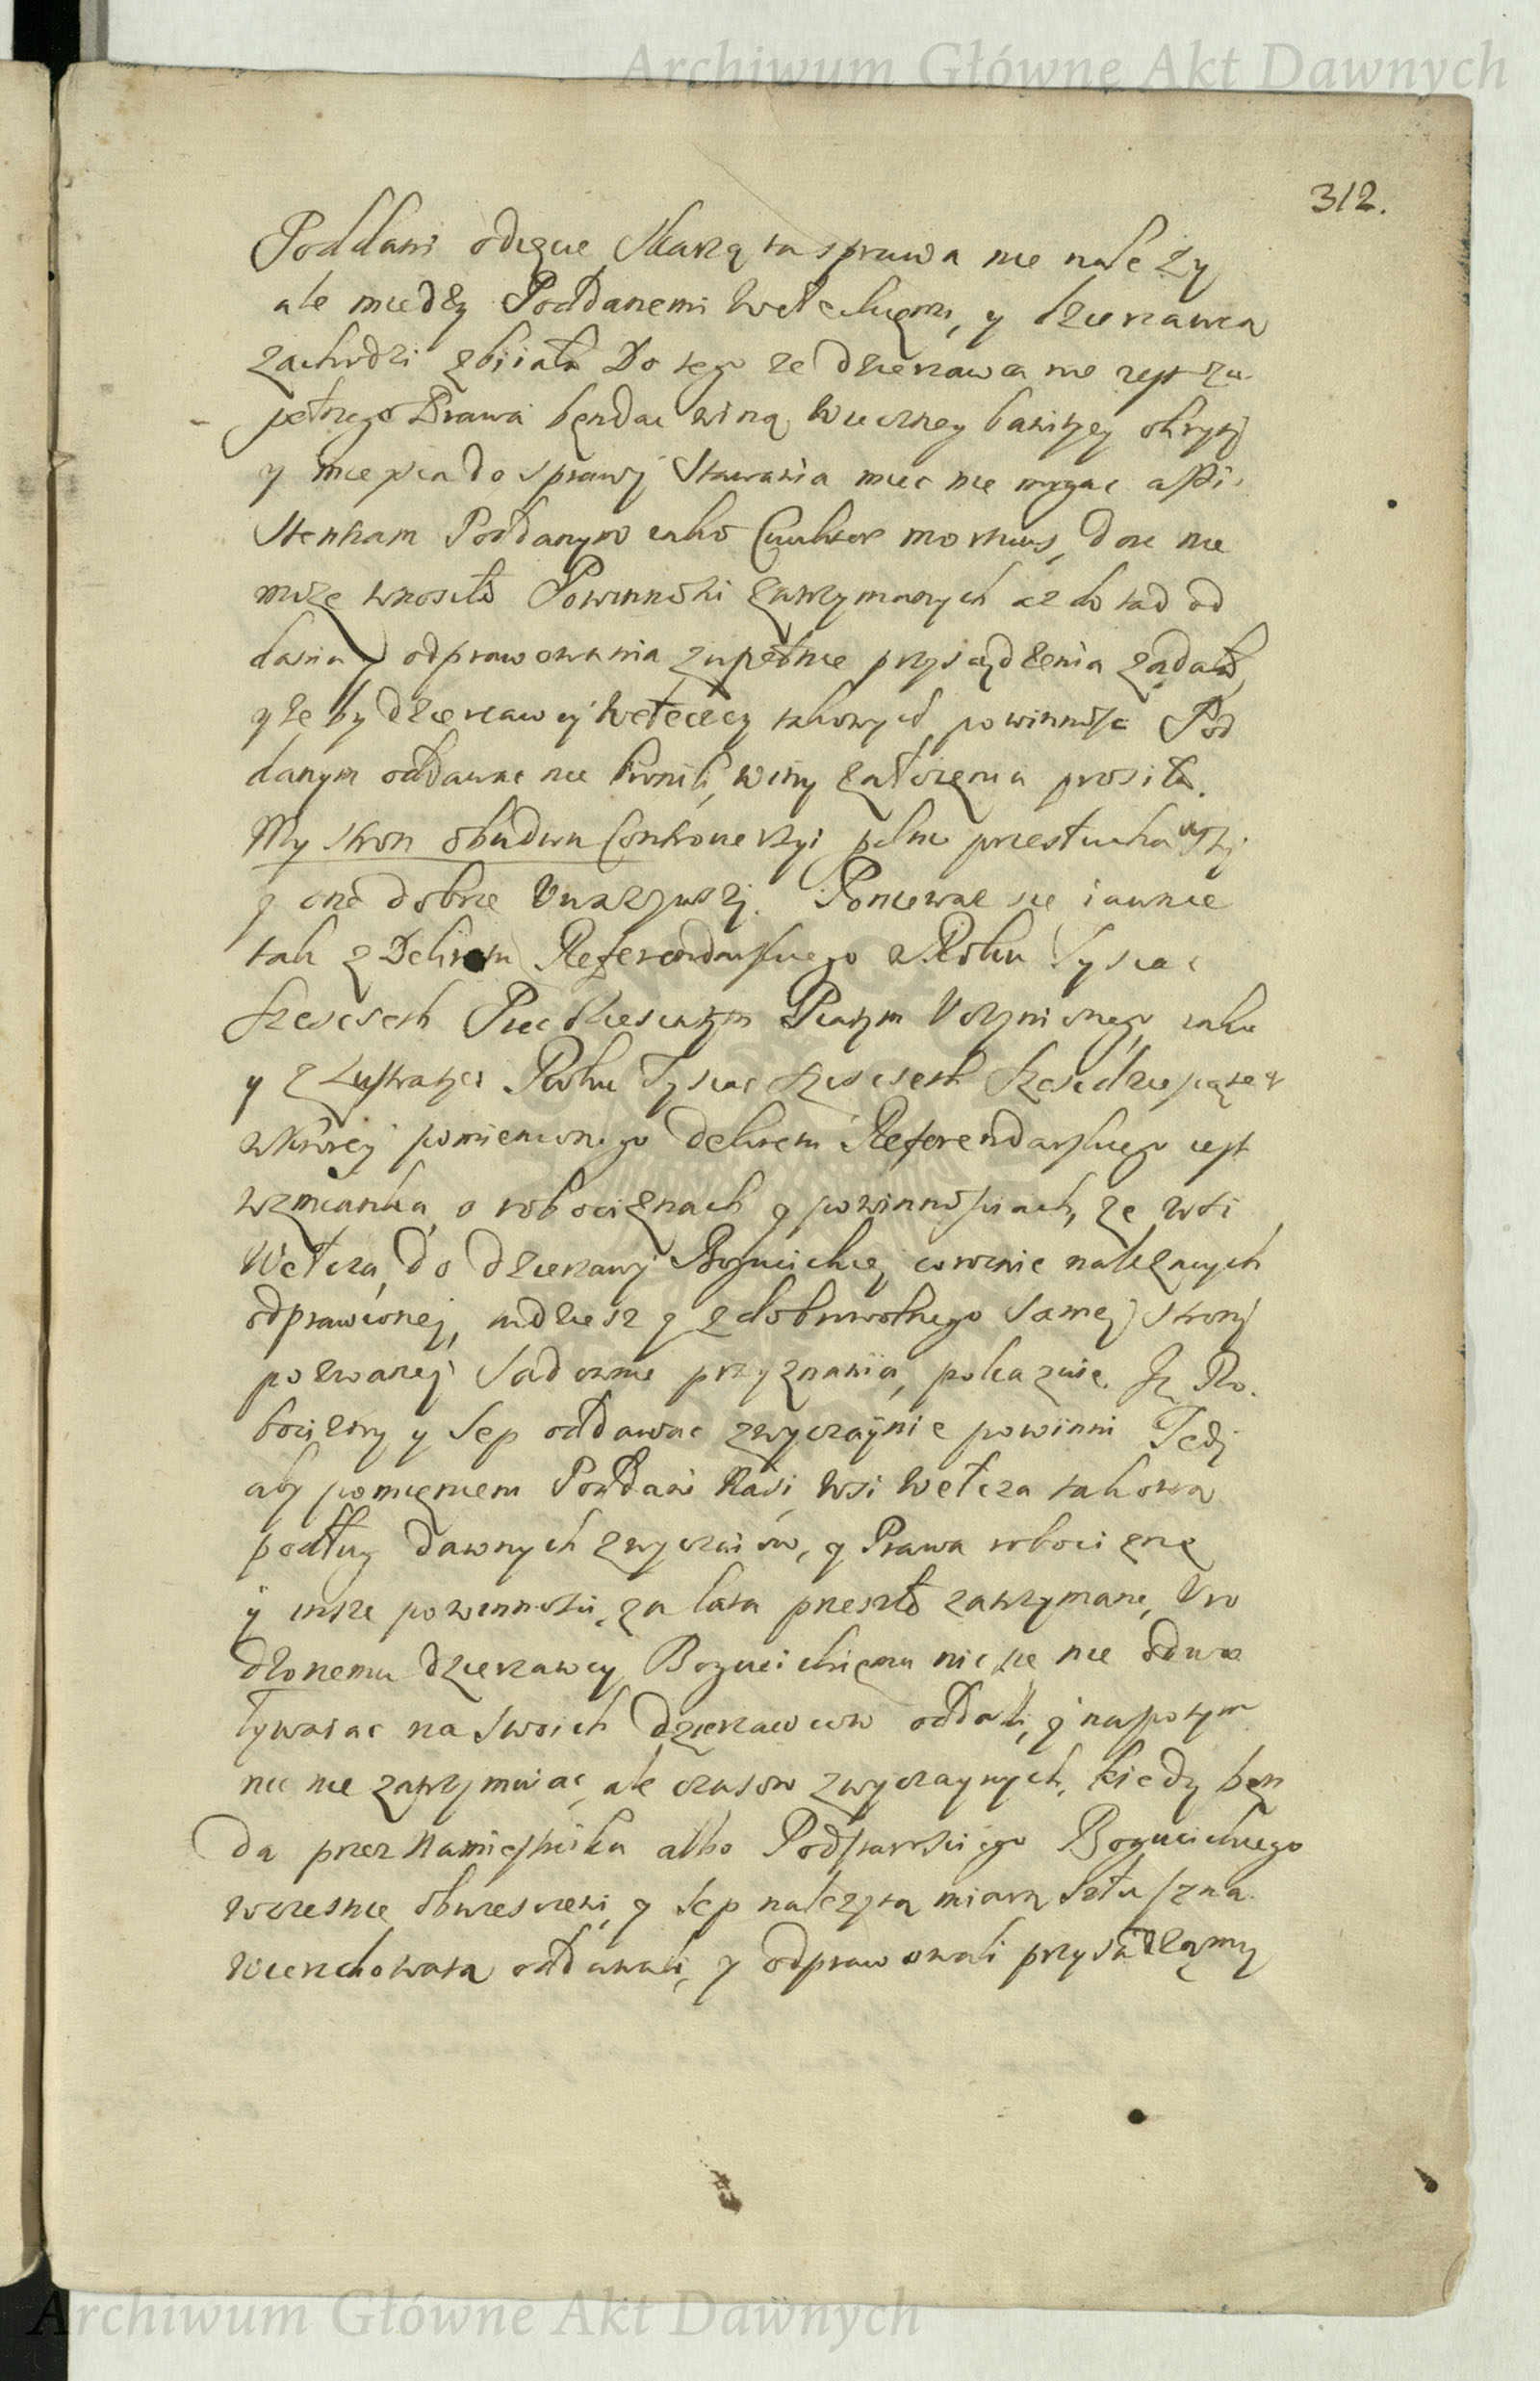 Archiwum Główne Akt Dawnych
312.
Poddani odięcie Skarzą ta sprawa nie nale zy
ale między Poddanemi Wełeckiemi, y dzierzawcą
zachodzi zbiiała Do tego ze dzierzawca nie iest zu
pełnego Prawa będac winą wieczney banityey okryty
y mieysca do sprawy Stawania miec nie mogąc
Poddanym iako Civiliter mortuus, dac nie
moze wnosiło Powinnosci zatrzymanych az do tad od
dania y odprawowania zupełnie przysądzenia ządała,
y ze by dzierzawcy Wełeccy takowych powinnosc Pod
danym oddawac nie bronili, winy załozenia prosiła.
My stron obudwu Controuersyi pilnie przesłuchawszy
y one dobrze Vwazywszy. Poniewaz sie iawnie
tak z Dekretu Referendarskiego w Roku Tysiac
Szescset Piecdziesiatym Piatym Vczynionego iako
y z Lustratyei Roku Tysiac Szescset Szescdziesiątey
wktorey pomienionego dekretu Referendarskiego iest
wzmianka, o robociznach y powinnosciach, ze wsi
Wełcza, do dzierzawy Bogucickiey corocznie nalezacych
odprawioney, tudziesz y z dobrowolnego samey strony
pozwaney sadownie przyznania, pokazuie, Iz Ro.
bocizny y Sep oddawac zwyczaynie powinni Tedy
aby pomienieni Poddani Nasi, wsi Wełcza takową
podług dawnych zwyczaiow, y Prawa robociznę
y insze powinnosci, za lata przeszło zatrzymane, Vro
dzonemu dzierzawcy Bogucickiemu nic sie nie odwo
ływaiac na swoich dzierzawcow oddali, y napotym
nic nie zatrzymuiac, ale czasow zwyczaynych, kiedy bęn
da przez Namiestnika albo Podstarosciego Bogucickiego
wczesnie obwiesczeni, y Sep nalezytą miarą
wierzchowatą oddawali, y odprawowali przysądzamy
Archiwum Główne Akt Dawnych